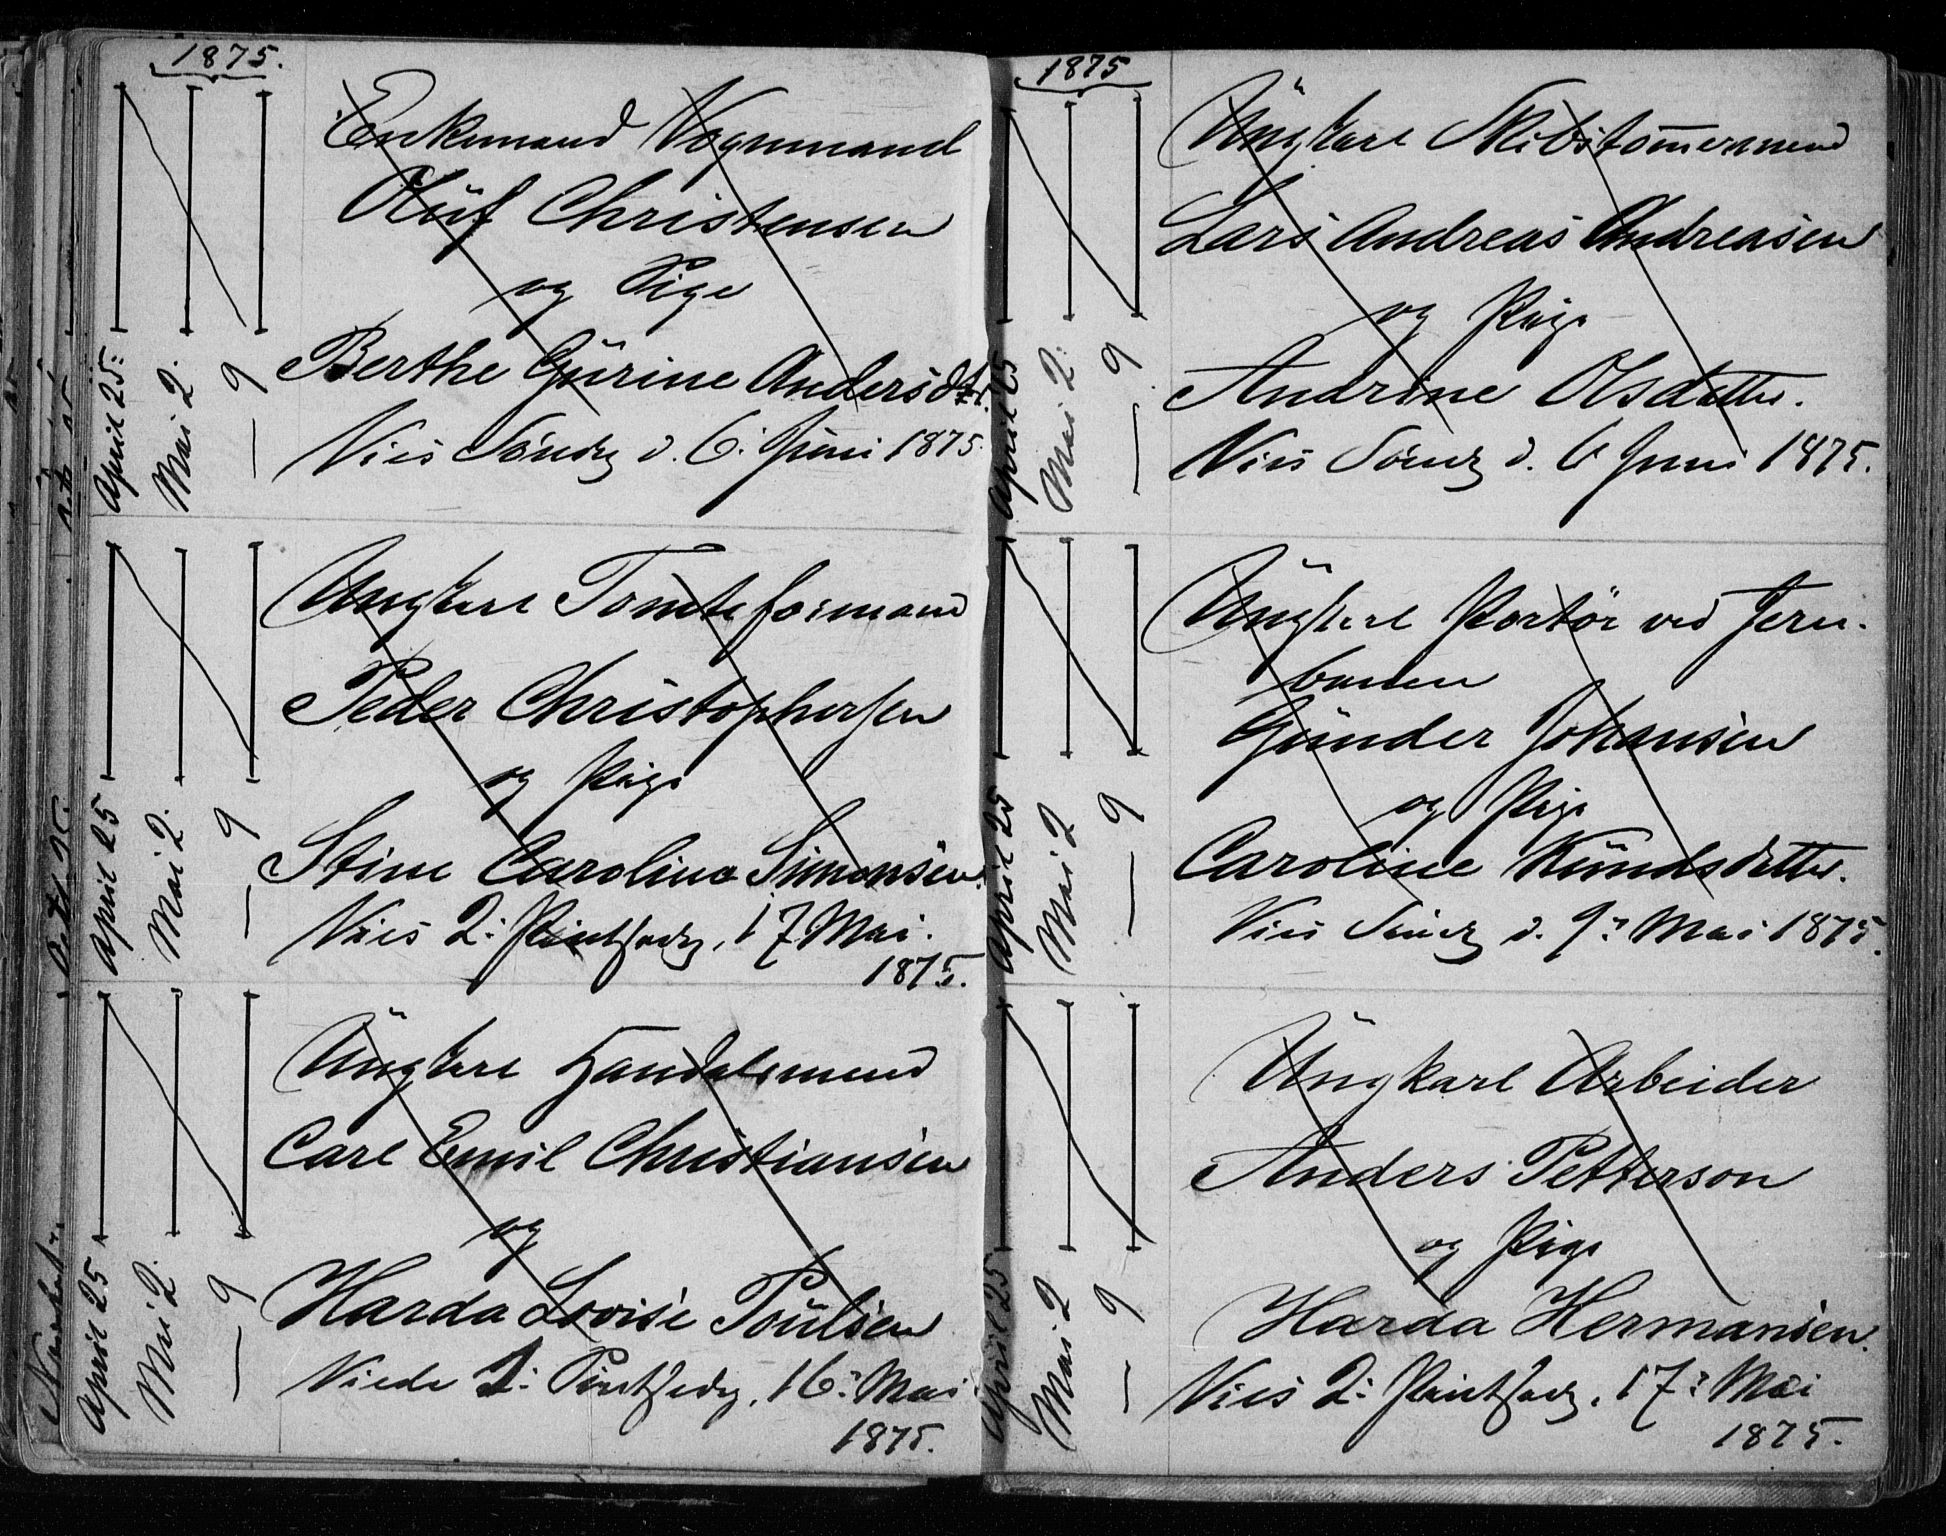 1875.
April 25.
Mai 2.
— 9
Enkemand Vognmand
Oluf Christensen
og Pige
Berthe Gürine Andersdtr.
Vies Søndg d. 6. Juni 1875.
April 25
Mai 2.
— 9
Üngkarl Tomteformand
Peder Christophersen
og Pige
Stine Caroline Simonsen.
Vies 2: Pintsedg, 17 Mai.
1875.
April 25
Mai 2.
— 9
Üngkarl Handelsmand
Carl Emil Christiansen
og
Harda Lovise Poülsen
Viede 1: Pintsedg, 16: Mai
1875.
1875
April 25
Mai 2.
— 9
Üngkarl Skibstømermand
Lars Andreas Andreasen
og Pige
Andrine Olsdatter.
Vies Søndg d. 6 Juni 1875.
April 25
Mai 2
— 9
Üngkarl Portør ved Jern-
banen
Günder Johansen
og Pige
Caroline Knüdsdatter.
Vies Søndg d. 9: Mai 1875.
April 25
Mai 2
— 9
Üngkarl Arbeider
Anders Petterson
og Pige
Harda Hermansen.
Vies 2: Pintsedg. 17: Mai
1875.